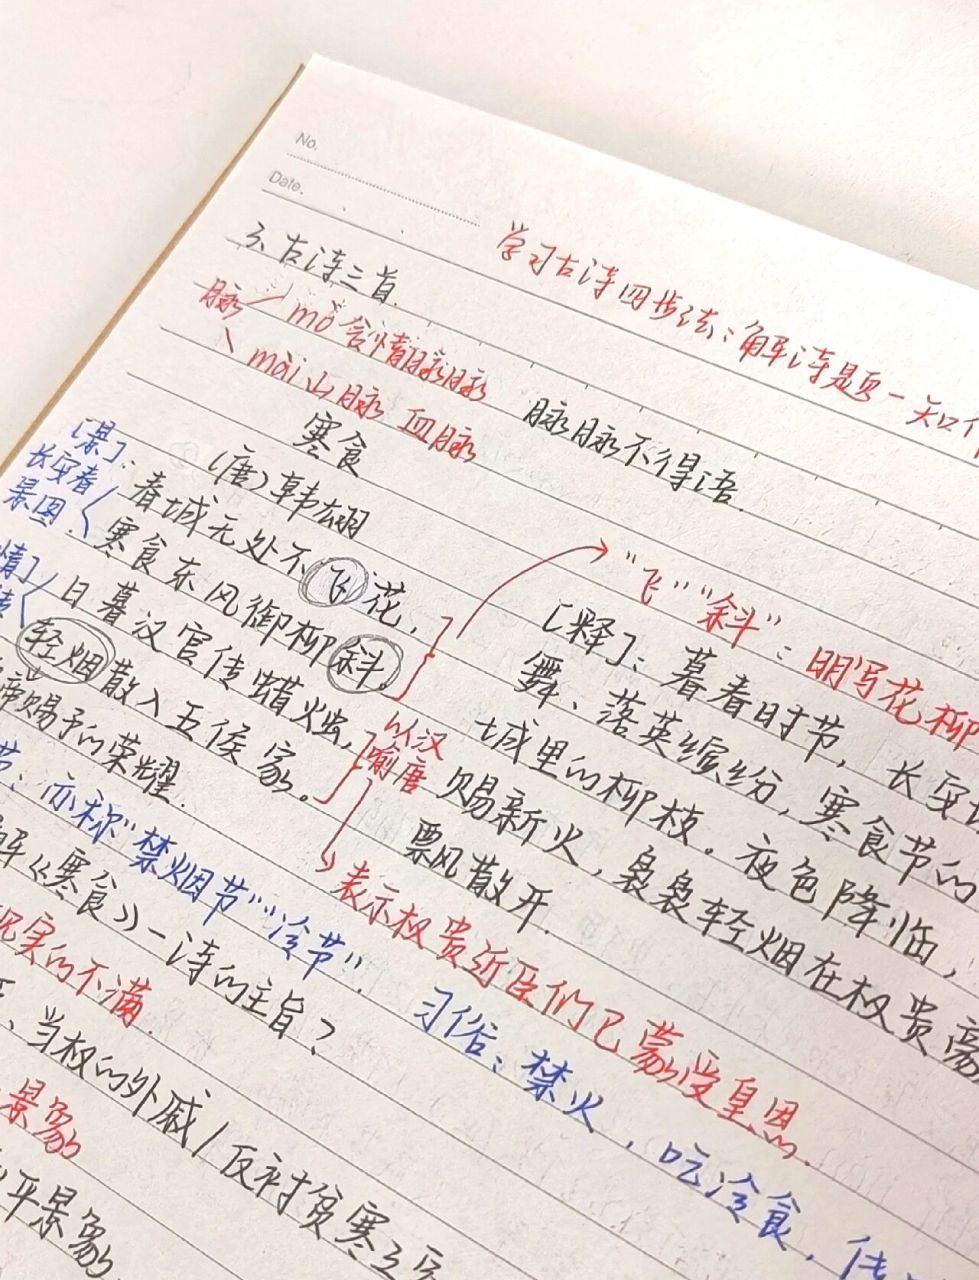 No.
Date.
学习古诗四步法：解诗题－知
3、古诗三首
脉 mò 含情脉脉 脉脉不得语
mài 山脉 血脉
寒食
(唐)韩翃
[景]
长安春
景图
春城无处不飞花，
寒食东风御柳斜。
情]
日暮汉宫传蜡烛，
轻烟散入五侯家。
"飞""斜"：明写花柳
[释]：暮春时节，长安
舞、落英缤纷，寒食节的
城里的柳枝。夜色降临，
赐新火，袅袅轻烟在权贵豪
飘散开
以汉
喻唐
赐予的荣耀
表示权贵近臣们已蒙受皇恩
节：亦称"禁烟节""冷节" 习俗：禁火，吃冷食，
解《寒食》一诗的主旨？
现实的不满
、当权的外戚/反衬贫寒之
景象
平景象